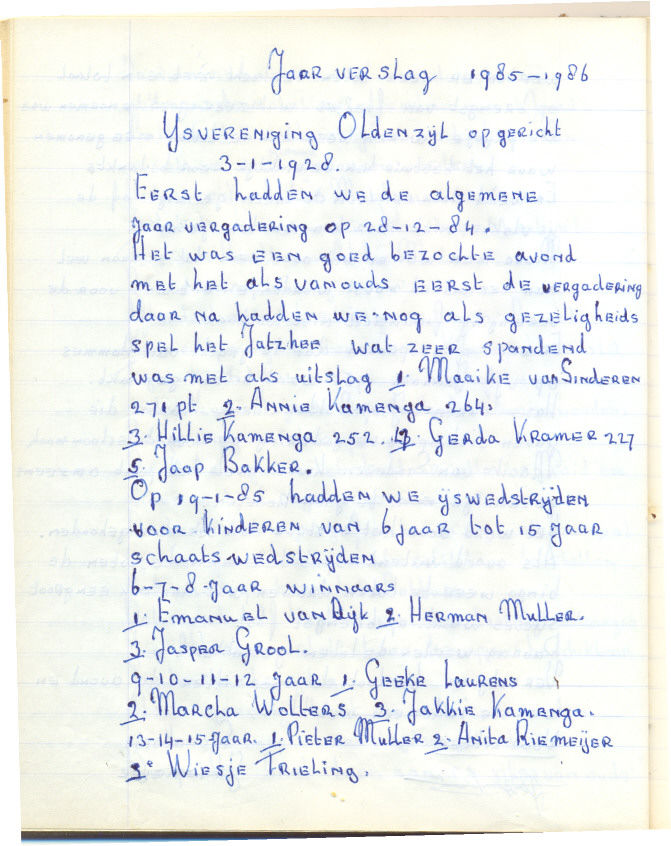 Jaar verslag 1985-1986
Ysvereniging Oldenzijl opgericht
3-1-1928.
Eerst hadden we de algemene
jaar vergadering op 28-12-84.
Het was een goed bezochte avond
met het als vanouds eerst de vergadering
daar na hadden we nog als gezeligheids
spel het Jatzhee wat zeer spandend
was met als uitslag 1. Maaike van Sinderen
271 pt 2. Annie Kamenga 264,
3. Hillie Kamenga 252. 4. Gerda Kramer 227
5. Jaap Bakker.
Op 19-1-85 hadden we ijswedstrijden
voor kinderen van 6 jaar tot 15 jaar
schaats wedstrijden
6-7-8-Jaar winnaars
1. Emanuel van Dijk 2. Herman Muller.
3. Jasper Groot.
9-10-11-12 Jaar 1. Geeke Laurens
2. Marcha Wolters 3. Jakkie Kamenga.
13-14-15-Jaar. 1. Pieter Muller 2. Anita Riemeijer
3. Wiesje Frieling.